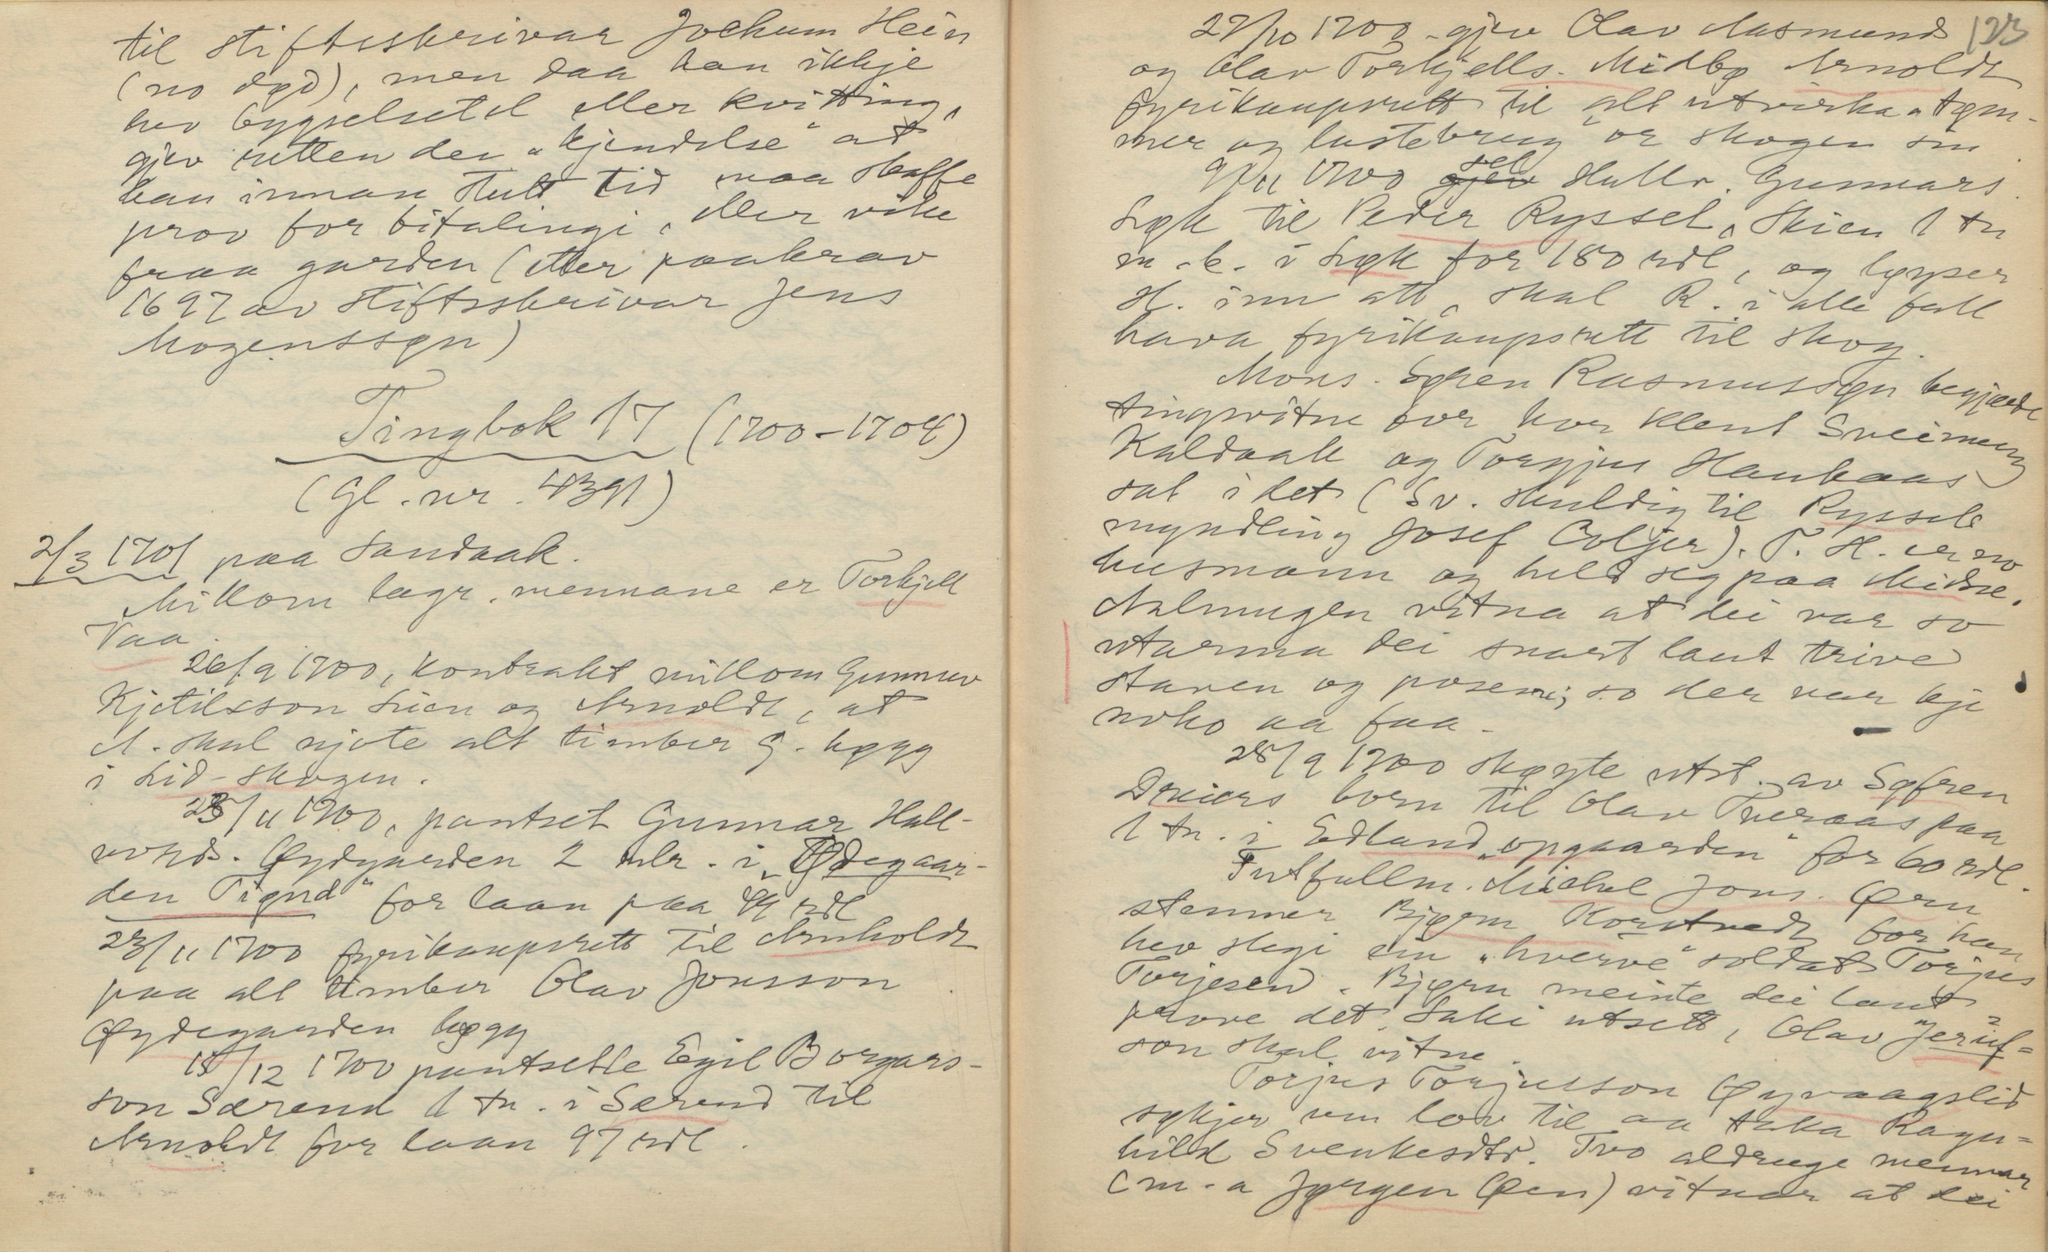 til stiftsskrivar Jochum Hein
(no død), men daa han ikkje
hev bygselsetel eller kvitting,
gjev retten dei "kjendelse" at
han innan stutt tid maa skaffe
prov for bitalingi, eller vike
fraa garden (etter paakrav
1697 av stiftsskrivar Jens
Mogenssøn)
Tingbok 17 (1700-1704)
(Gl. nr. 4391)
2/3 1701 paa Sandaak.
Millom lagr. mennane er Torkjell
Vaa.
26/9 1700, kontrakt millom Gunnuv
Kjetilsson Lien og Arnoldt, at
A. skal njote alt timber G. høgg
i Lid-skogen.
23/11 1700, pantset Gunnar Hall-
vords. Øydgarden 2 mlr. i "Ødegaar-
den Tignd" for laan paa 99 rdl
23/11 1700 fyrikaupsrett til Arnholdt
paa alt timber Olav Jonsson
Øydegarden høgg
18/12 1700 pantsette Egil Borgars-
son Særend 1 tn. i Særend til
Arnoldt for laan 97 rdl.
123
27/10 1700 gjev Olav Aasmunds
og Olav Torkjells. Midbø Arnoldt
fyrikaupsrett til alt utvirka "tøm-
mer og lastebrug" or skogen sin
9/11 1700 gjev sel Hallv. Gunnars.
Løk til Peder Ryssel, Skien 1 tn
m.k. i Løk for 180 rdl, og løyser
H. inn att, skal R. i alle fall
hava fyrikaupsrett til skog.
Mons. Søren Rasmussøn begjærde
tingsvitne over kor klent Sveinung
Kaldaak og Torgjus Haukaas
sat i det (Sv. skuldig til Ryssels
myndling Josef Coljer). T. H. er no
husmann og held seg paa Midbø.
Aalmugen vitna at dei var so
utarma dei snart laut trive
staven og posen; so der var kje
noko aa faa.
28/9 1700 skøyte utst. av Søfren
Dreiers born til Olav Tveraas paa
1 tn. i Edland "opgaarden" for 60 rdl.
Futfullm. Michel Jons. Ørn
stemner Bjørn Korstvedt for han
hev slegi ein "hverve" soldat Torjus
Torjesen. Bjørn meinte dei laut
prove det. Saki utsett, Olav Jeruf-
son skal vitne.
Torjus Torjusson Øyvaagslid
søkjer um lov til aa takа Ragn-
hild Svenkesdtr. Tvo aldruge mennar
(m. a Jørgen Øen) vitnar at dei